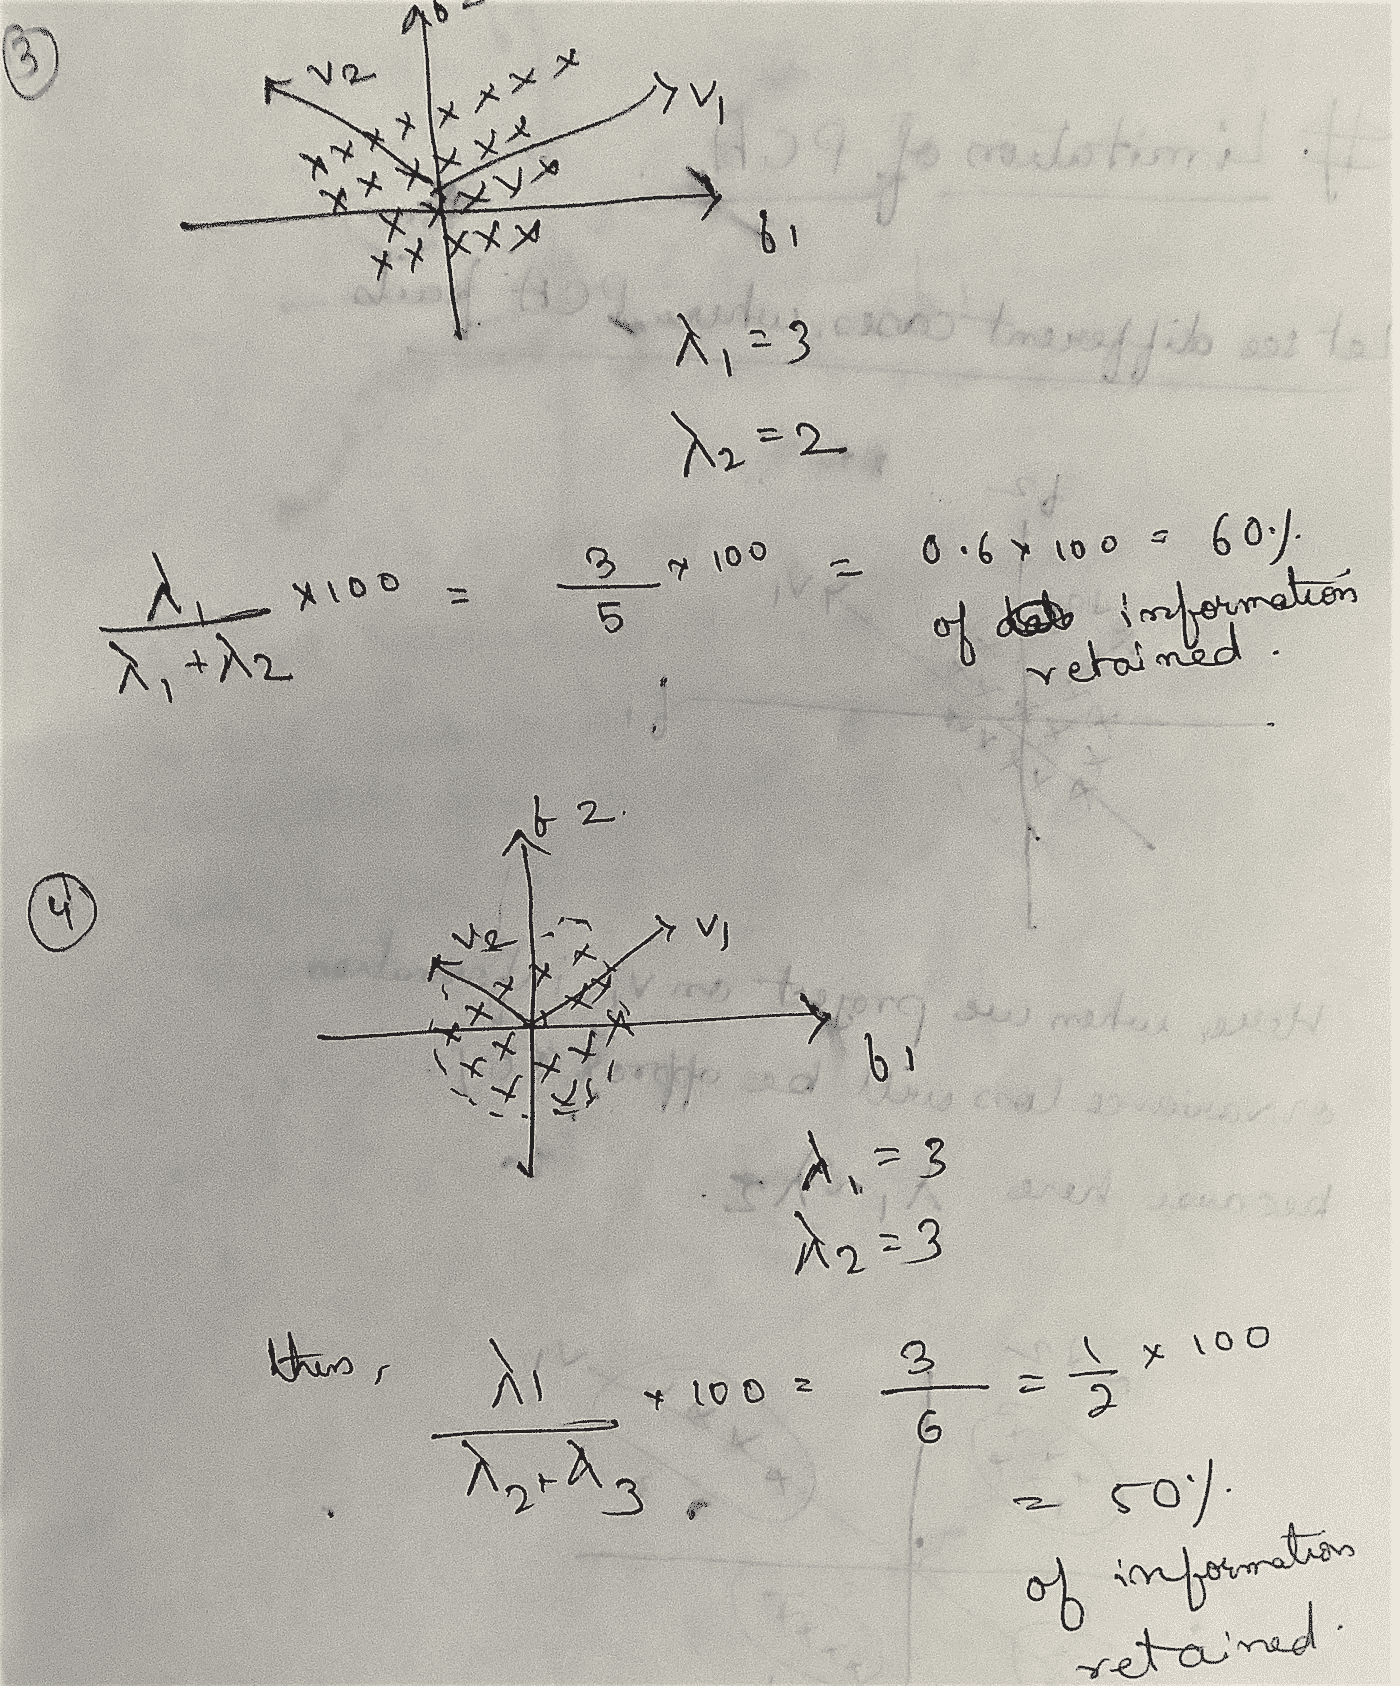 3
f2
v2
v1
f1
λ1 = 3
λ2 = 2
λ1 / λ1 + λ2 × 100 = 3/5 × 100 = 0.6 × 100 = 60%
of information
retained.
f2.
4
v2
v1
f1
λ1 = 3
λ2 = 3
thus, λ1 / λ2 + λ3 × 100 = 3/6 = 1/2 × 100
= 50%
of information
retained.